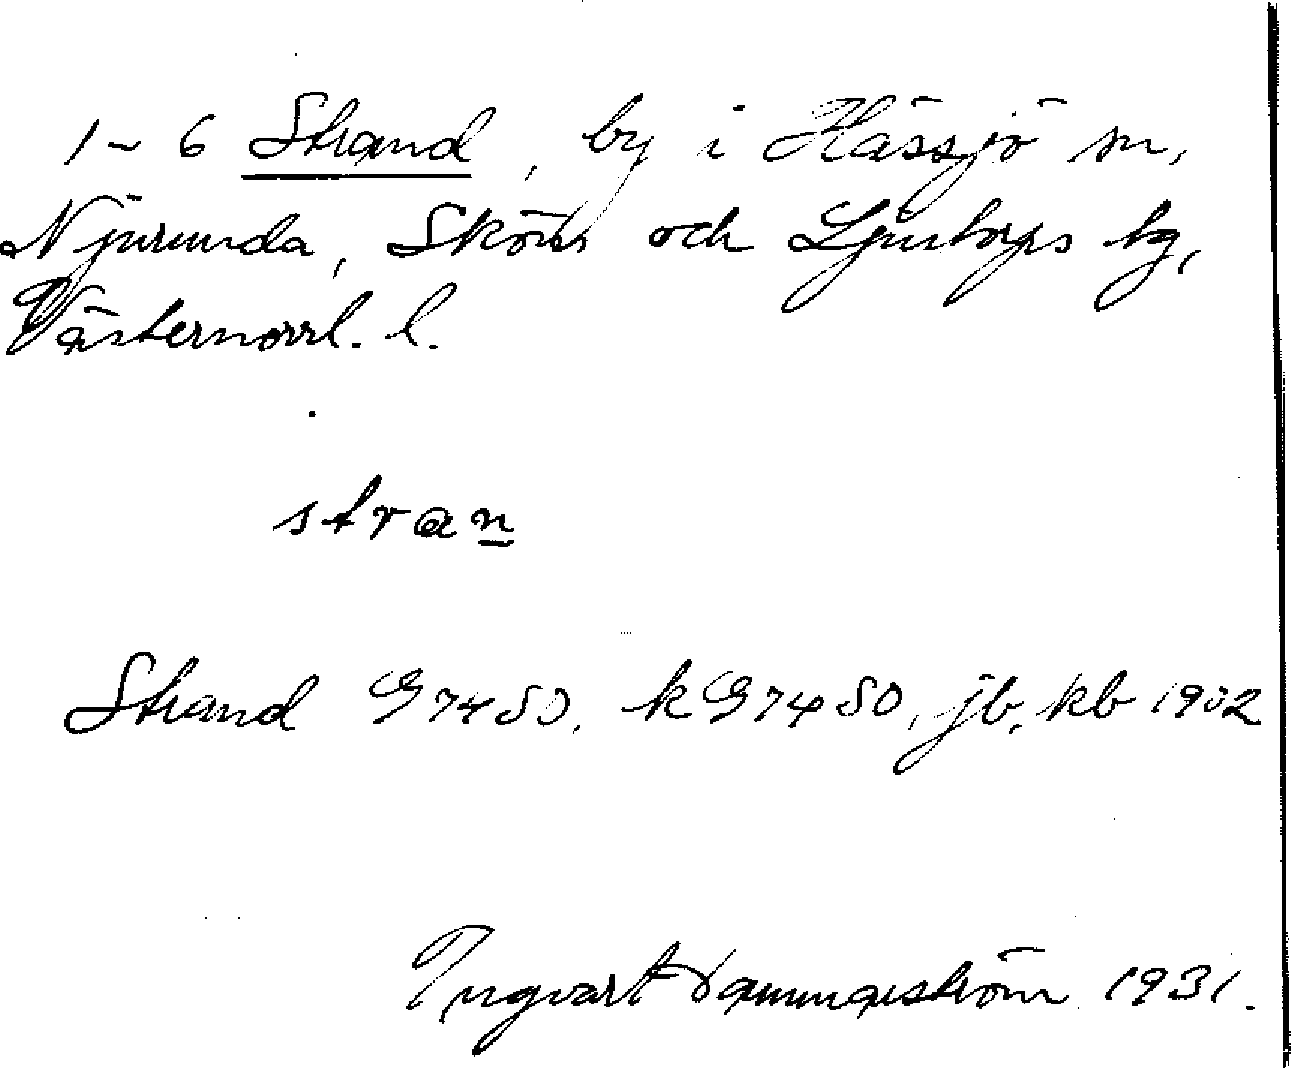 1~6 Strand, by i Hässjö sn,
Njurunda, Sköns och Ljustorps tg,
Västernorrl. l.
stran
Strand G7480. k G7480, jb, kb 1902
Ingvart 1931.